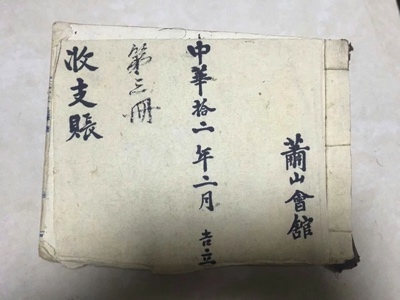 蕭山會館
中華拾二年二月 吉立
第三冊
收支賬